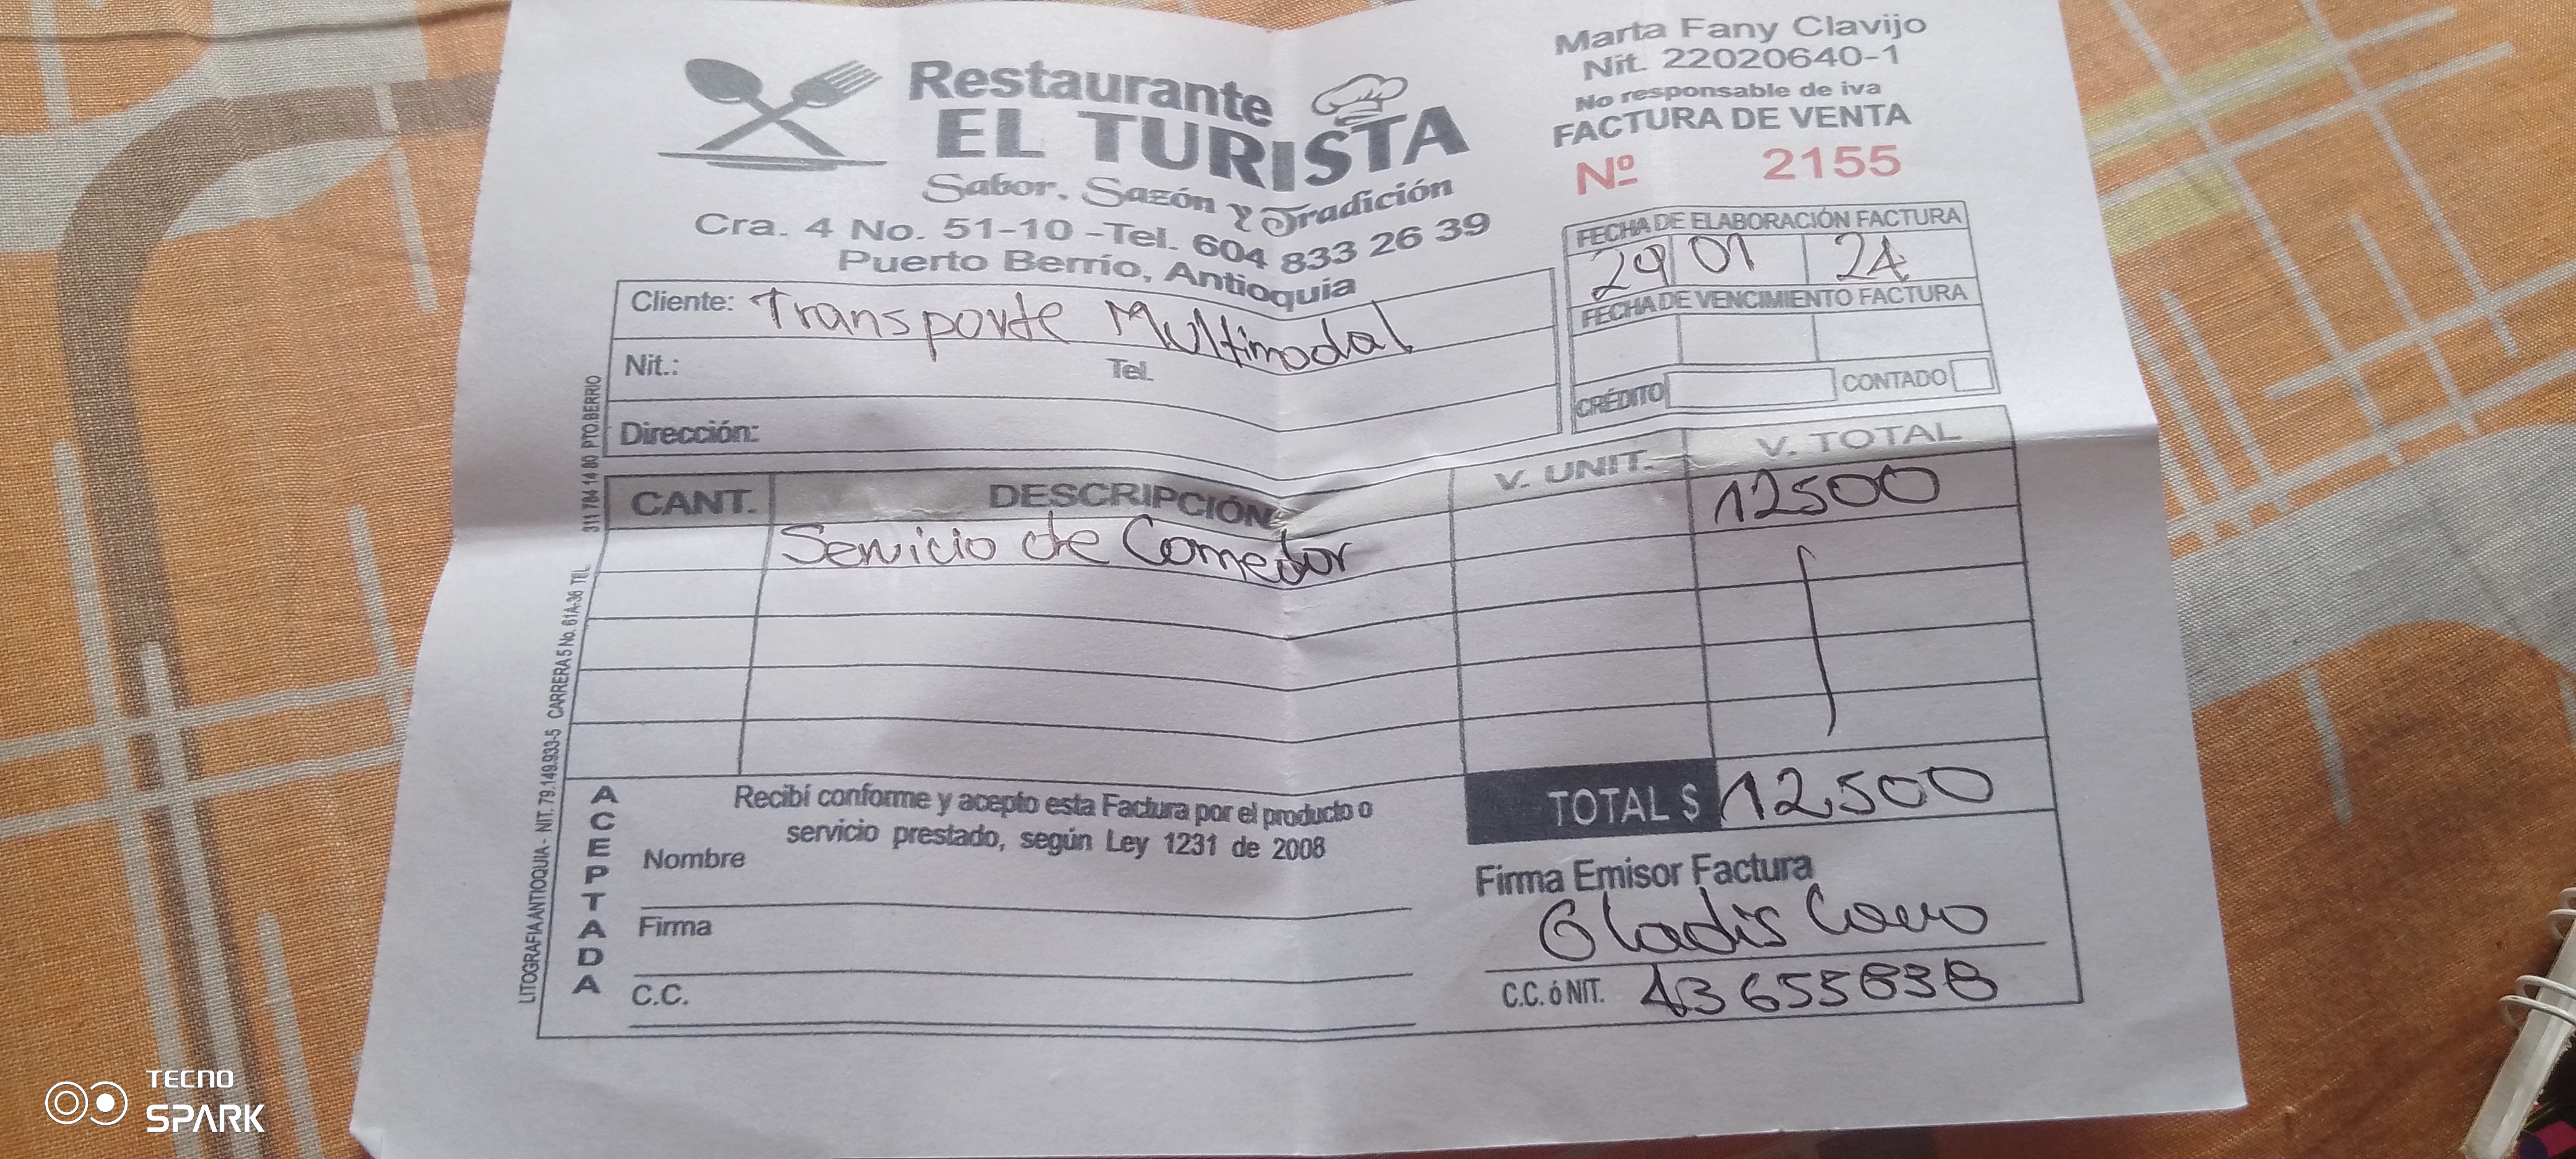 Restaurante
EL TURISTA
Sabor, Sazón y Tradición
Cra. 4 No. 51-10 -Tel. 604 833 26 39
Puerto Berrío, Antioquia
Marta Fany Clavijo
Nit. 22020640-1
No responsable de iva
FACTURA DE VENTA
Nº 2155
FECHA DE ELABORACIÓN FACTURA
29 01 24
FECHA DE VENCIMIENTO FACTURA
CRÉDITO CONTADO
Cliente: Transporte Multimodal
Nit.: Tel.
Dirección:
CANT. DESCRIPCIÓN V. UNIT. V. TOTAL
Servicio de Comedor 12500
TOTAL $ 12.500
Recibí conforme y acepto esta Factura por el producto o
servicio prestado, según Ley 1231 de 2008
ACEPTADA
Nombre
Firma
C.C.
Firma Emisor Factura
Gladis
C.C. ó NIT. 43655838
LITOGRAFIA ANTIOQUIA - NIT. 79.149.933-5 CARRERA 5 No. 61A-36 TEL. 311 784 14 80 PTO.BERRIO
TECNO
SPARK